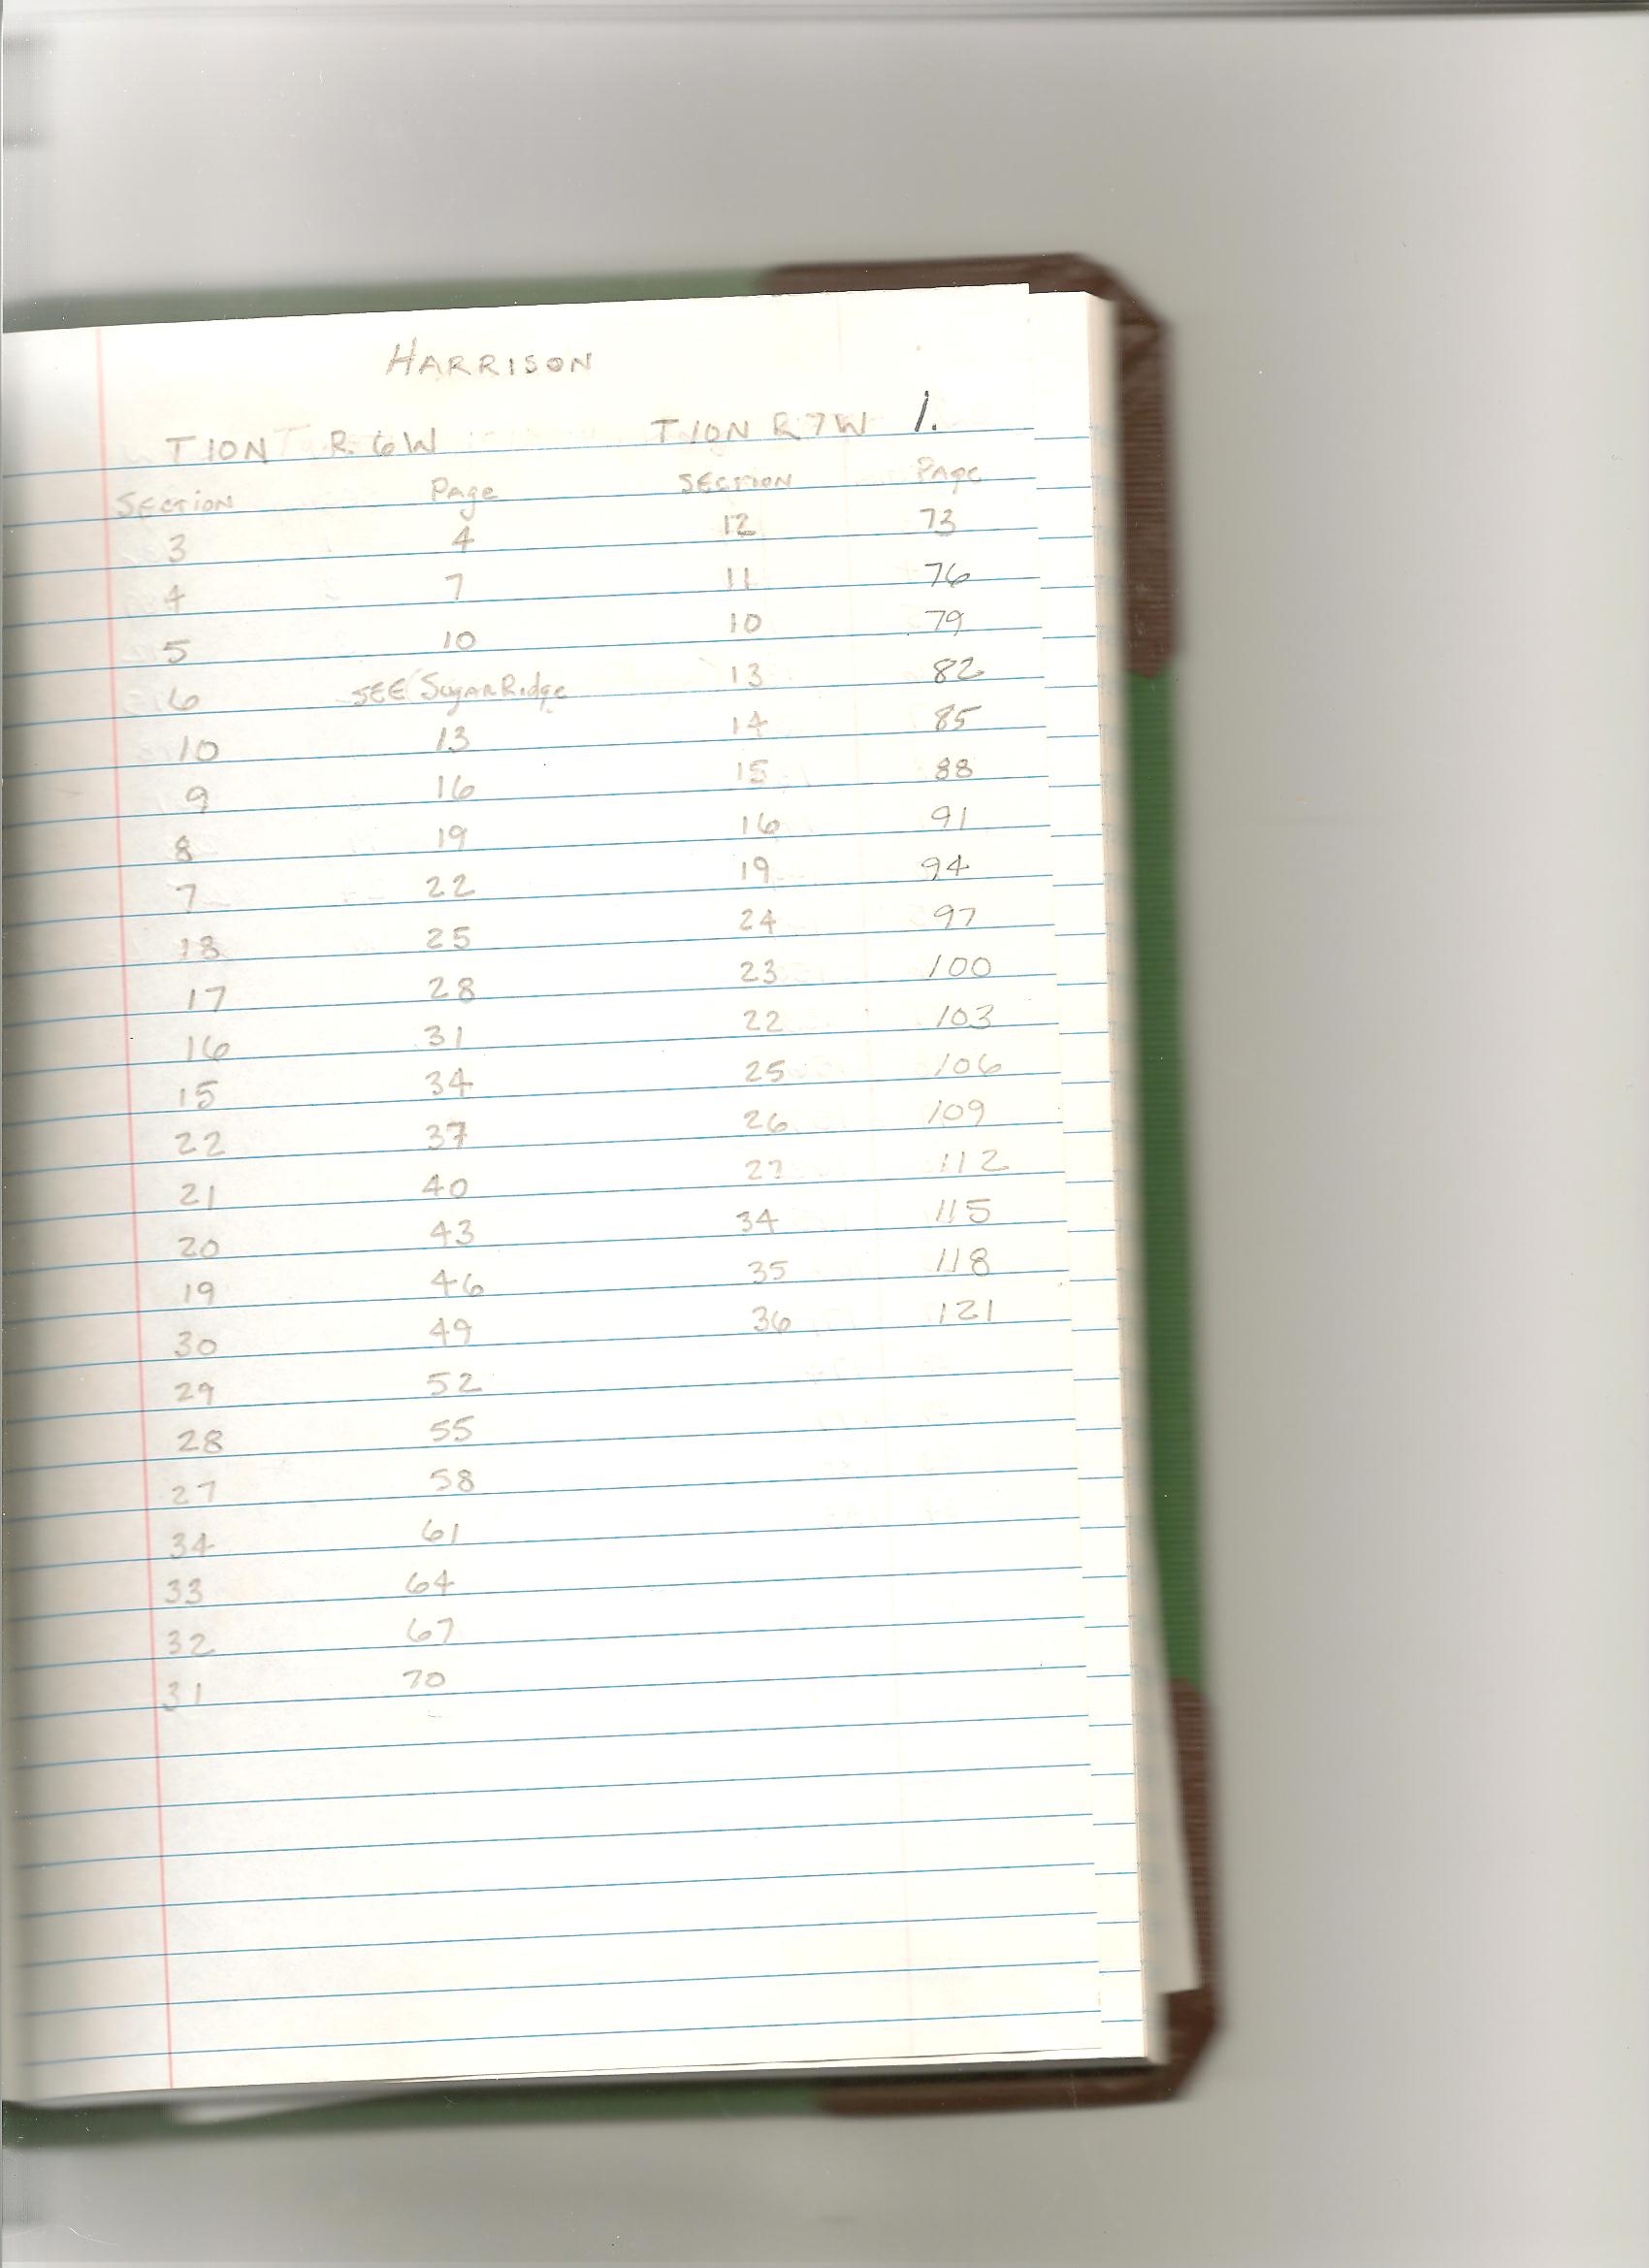 HARRISON
T10N R.6W T10N R7W 1.
SECTION Page SECTION PAGE
3 4 12 73
4 7 11 76
5 10 10 79
6 SEE Sugar Ridge 13 82
10 13 14 85
9 16 15 88
8 19 16 91
7 22 19 94
18 25 24 97
17 28 23 100
16 31 22 103
15 34 25 106
22 37 26 109
21 40 27 112
20 43 34 115
19 46 35 118
30 49 36 121
29 52
28 55
27 58
34 61
33 64
32 67
31 70